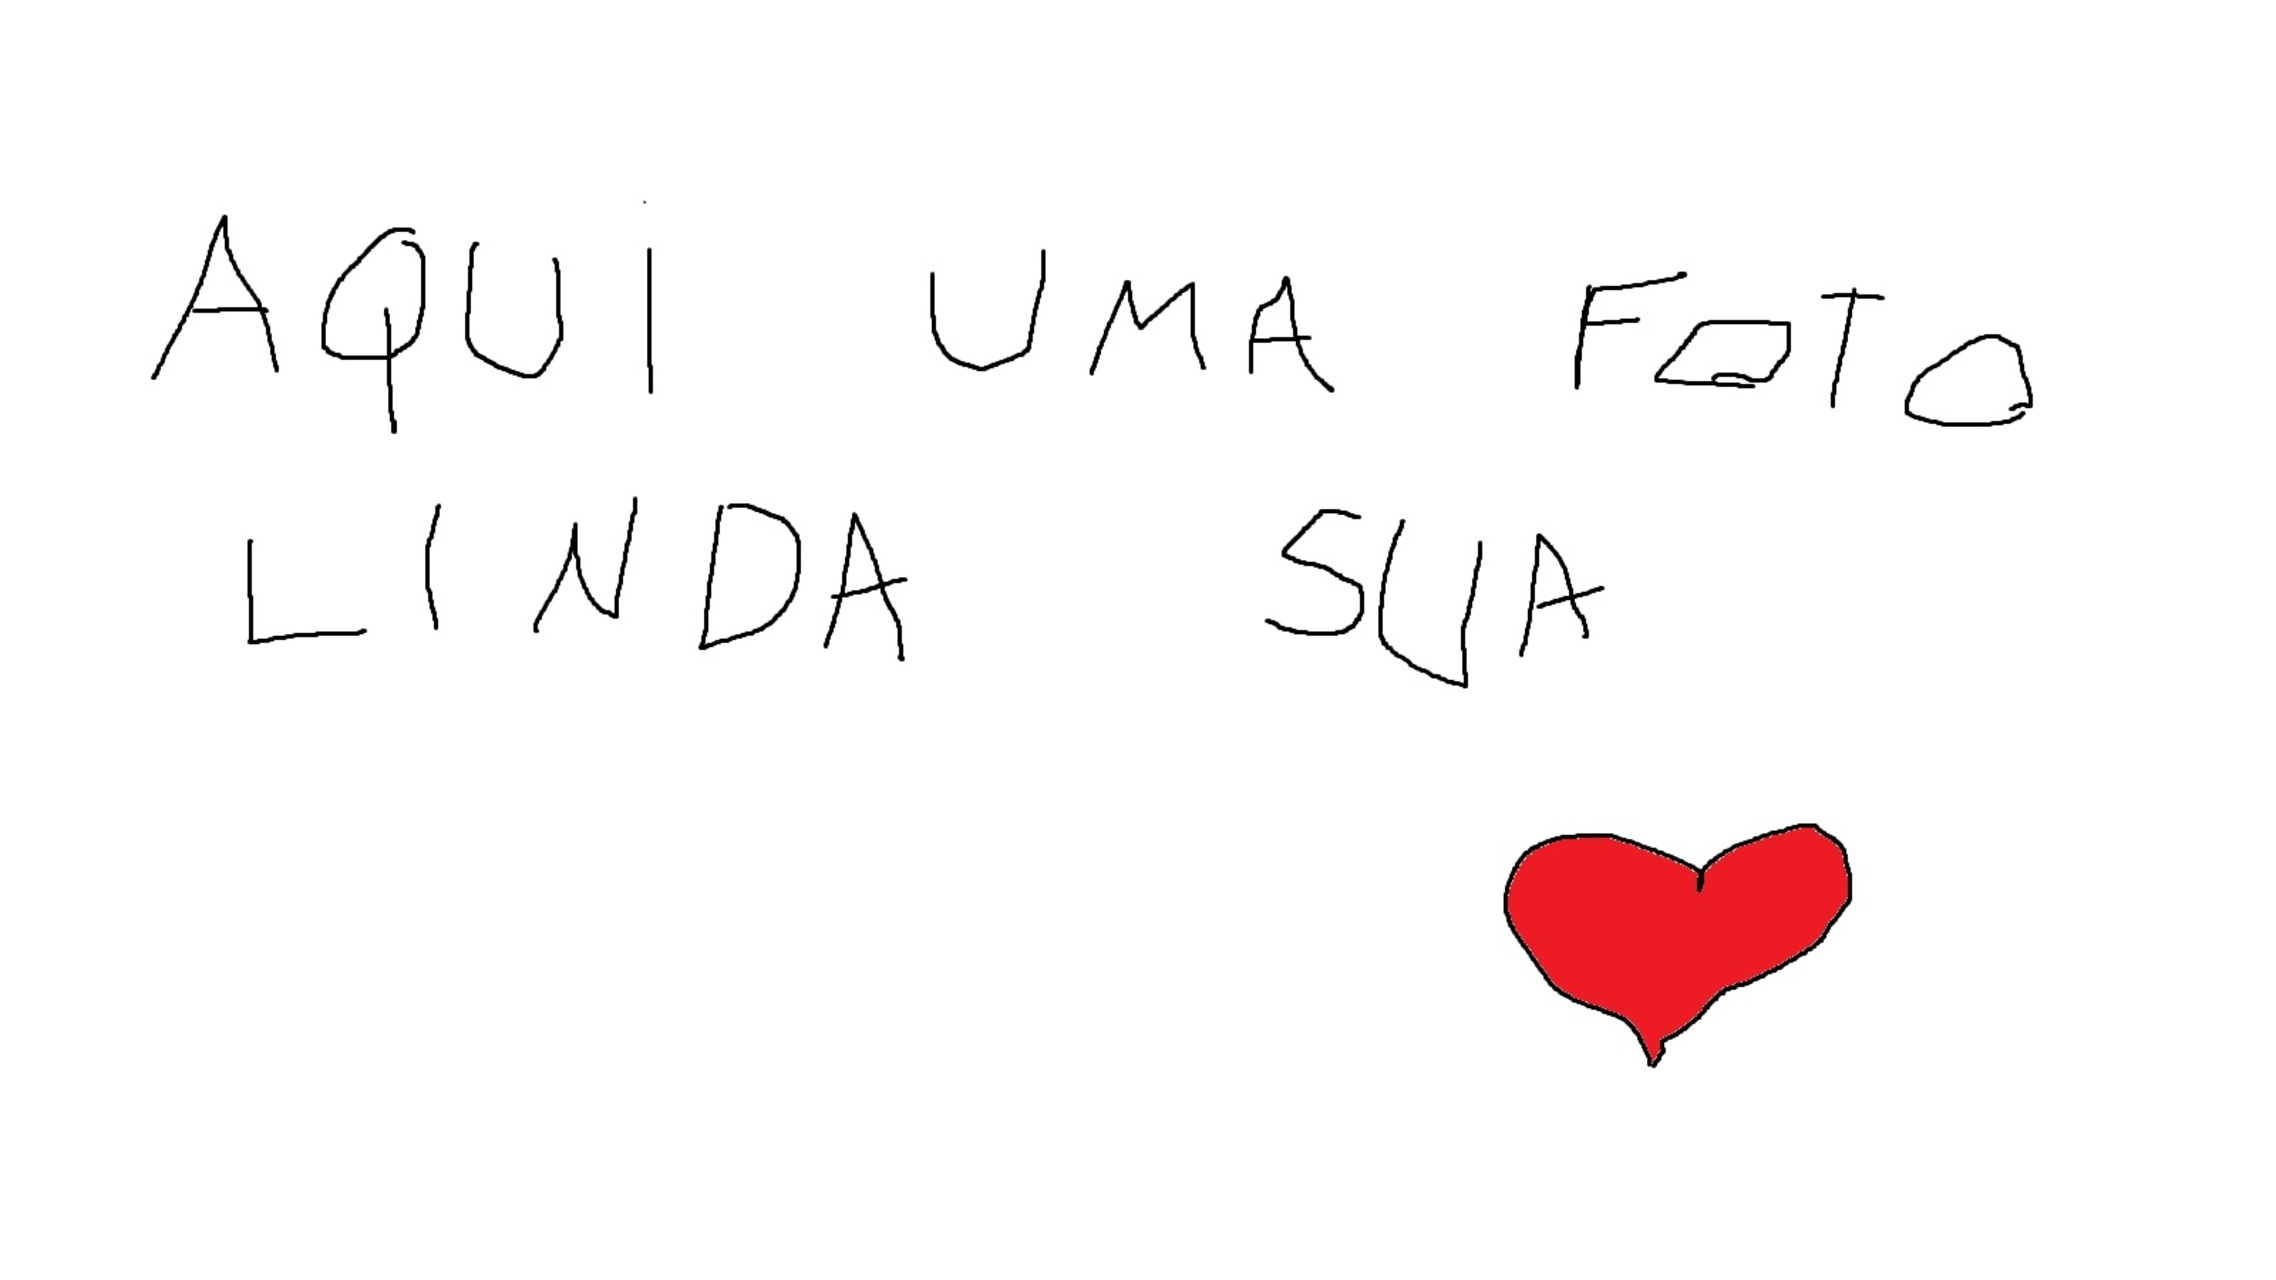 AQUI UMA FOTO
LINDA SUA